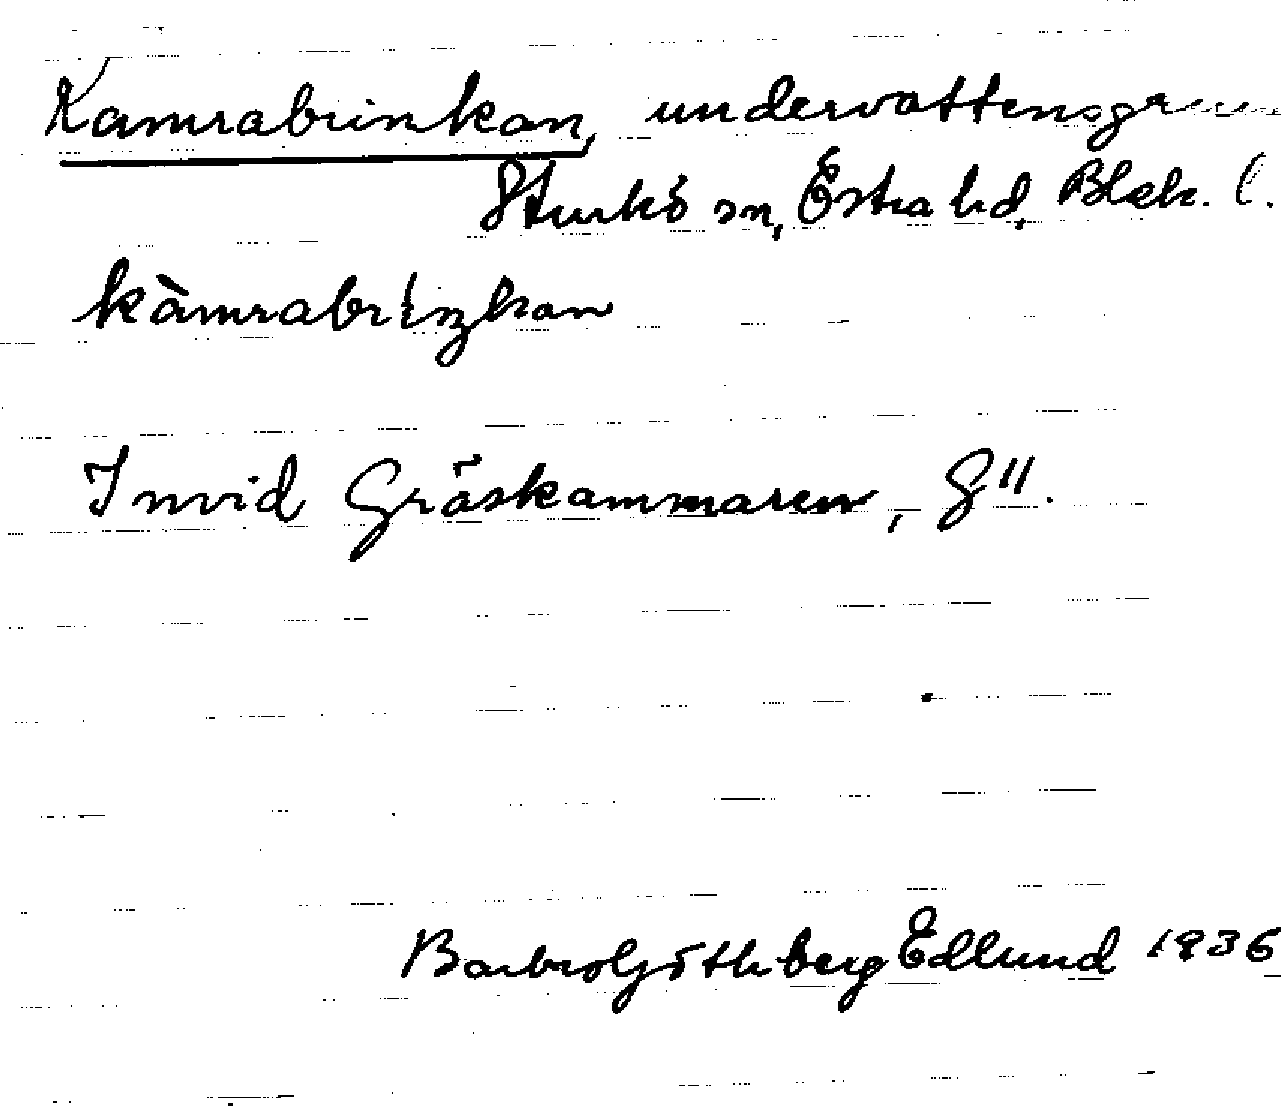 Kamrabrinkan, undervattensgrun
Sturkö sn, Östra hd, Blek. l.
kàmrabriŋkan
Invid Gräskammaren, G".
Barbro Göthberg Edlund 1936